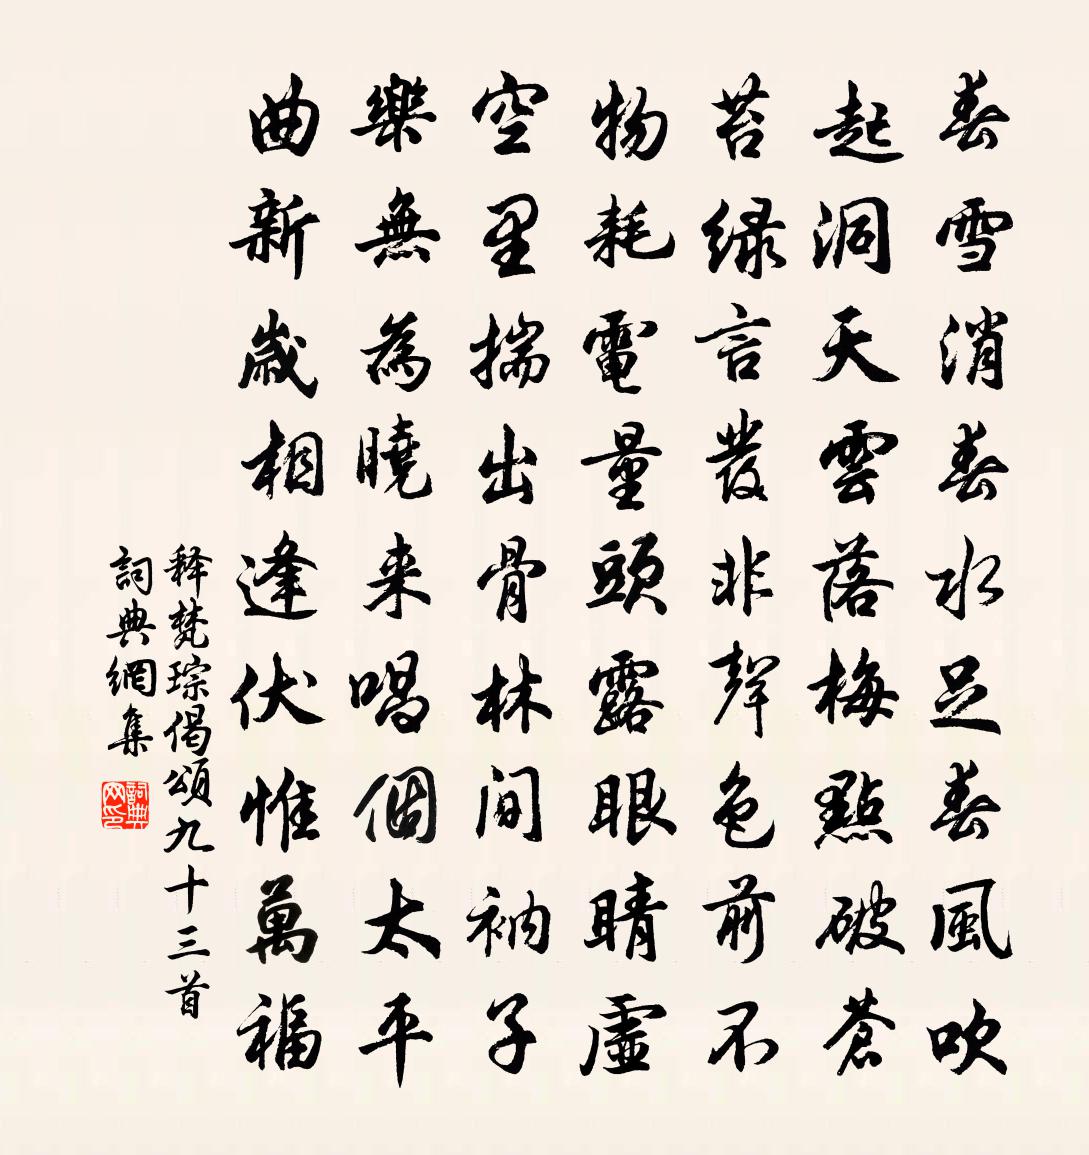 春雪消春水足春風吹
起洞天雲落梅點破蒼
苔緑言言發非聲色前不
物耗電量頭露眼睛虛
空里揣出骨林间衲子
樂無為曉来唱個太平
曲新歲相逢伏惟萬福
释梵琮偈頌九十三首
詞典網集
詞典网印